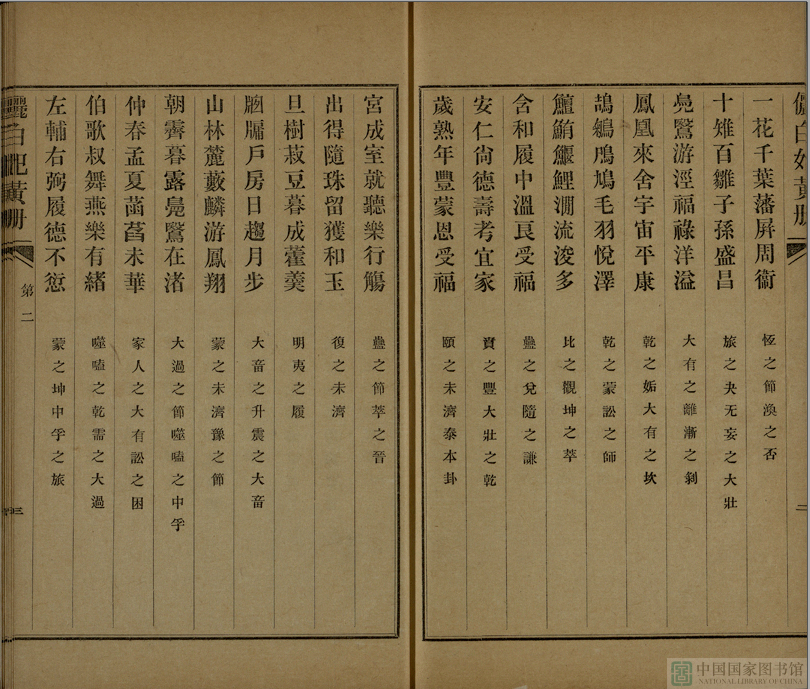 儷白妃黃册
二
一花千葉藩屏周衞
恆之節渙之否
十雉百雛子孫盛昌
旅之夬无妄之大壯
鳧鷖游涇福祿洋溢
大有之離漸之剝
鳳凰來舍宇宙平康
乾之姤大有之坎
鴣鵴鳲鳩毛羽悅澤
乾之蒙訟之師
鱣鮪鰋鯉瀾流浚多
比之觀坤之萃
含和履中溫良受福
蠱之兌隨之謙
安仁尙德壽考宜家
賁之豐大壯之乾
歲熟年豐蒙恩受福
頤之未濟泰本卦
宮成室就聽樂行觴
蠱之節萃之晉
出得隨珠留獲和玉
復之未濟
旦樹菽豆暮成藿羹
明夷之履
牕牖戶房日趨月步
大畜之升震之大畜
山林麓藪麟游鳳翔
蒙之未濟豫之節
朝霽暮露鳧鷖在渚
大過之節噬嗑之中孚
仲春孟夏萳莒未華
家人之大有訟之困
伯歌叔舞燕樂有緖
噬嗑之乾需之大過
左輔右弼履德不愆
蒙之坤中孚之旅
儷白妃黃册
第二
三
中国国家图书馆
NATIONAL LIBRARY OF CHINA